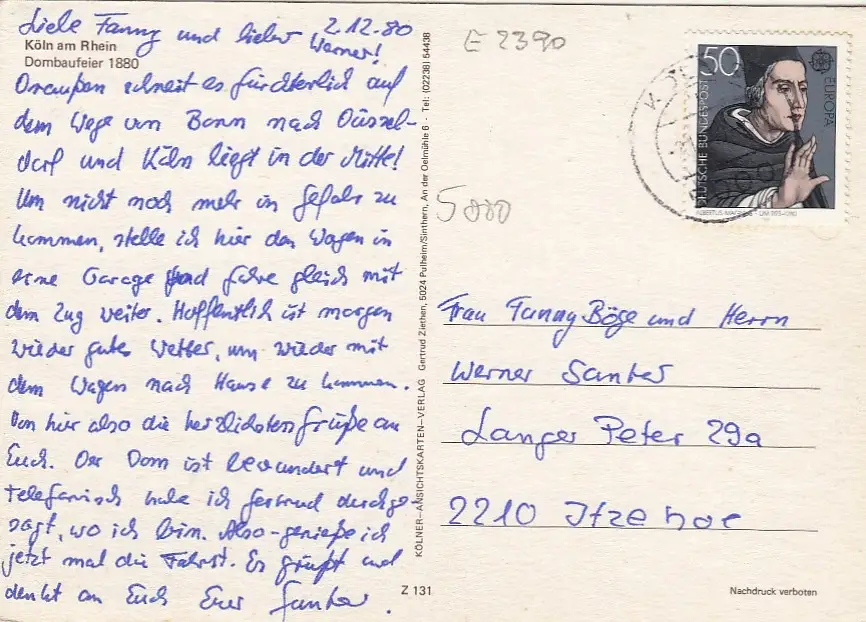 Liebe Fanny und lieber Werner! 2.12.80
Köln am Rhein
Dombaufeier 1880
Draußen schneit es fürchterlich auf
dem Wege von Bonn nach Düssel-
dorf und Köln liegt in der Mitte!
Um nicht noch mehr in Gefahr zu
kommen, stelle ich hier den Wagen in
eine Garage und fahre gleich mit
dem Zug weiter. Hoffentlich ist morgen
wieder gutes Wetter, um wieder mit
dem Wagen nach Hause zu kommen.
Von hier also die herzlichsten Grüße an
Euch. Der Dom ist bewundert und
telefonisch habe ich Gertrud durchge-
sagt, wo ich bin. Also - genieße ich
jetzt mal die Fahrt. Es grüßt und
denkt an Euch Euer
KÖLNER-ANSICHTSKARTEN-VERLAG Gertrud Ziethen, 5024 Pulheim/Sinthern, An der Oelmühle 6 - Tel: (02238) 54438
Z 131
E 2390
5000
50
DEUTSCHE BUNDESPOST
EUROPA
ALBERTUS MAGNUS
Frau Fanny Böge und Herrn
Werner Santer
Langer Peter 29a
2210 Itzehoe
Nachdruck verboten